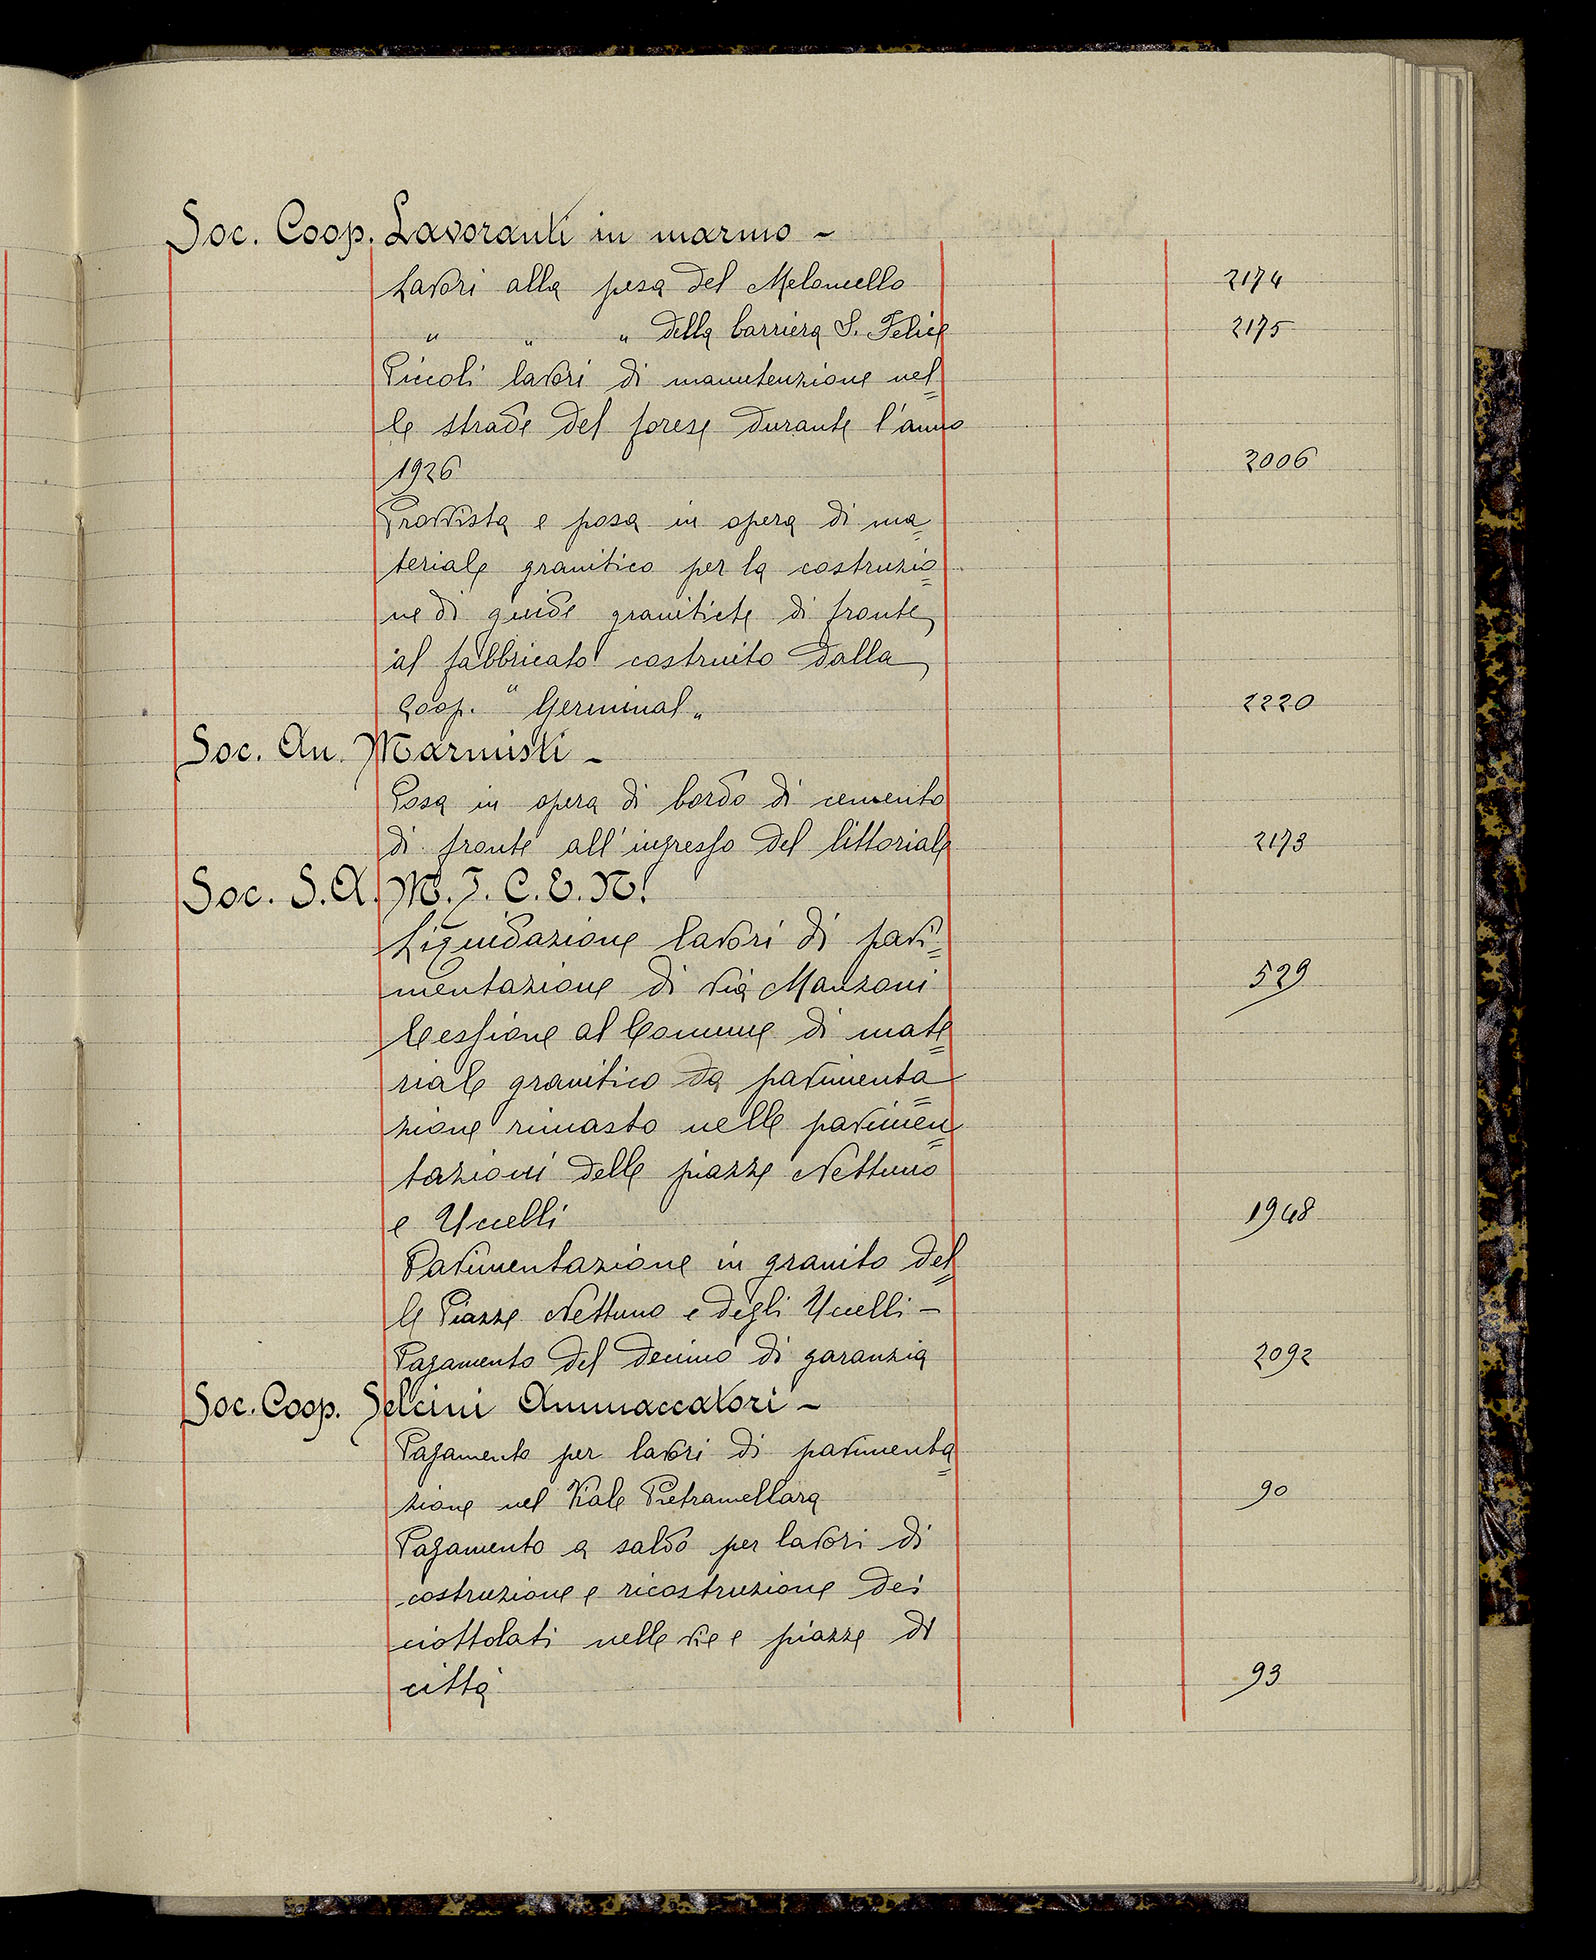 Soc. Coop. Lavoranti in marmo -
Lavori alla pesa del Meloncello 2174
" " " della barriera S. Felice 2175
Piccoli lavori di manutenzione nel=
le strade del forese durante l'anno
1926 2006
Provvista e posa in opera di ma=
teriale granitico per la costruzio=
ne di guide granitiche di fronte
al fabbricato costruito dalla
Coop. "Germinal" 2220
Soc. An. Marmisti -
Posa in opera di bordo di cemento
di fronte all'ingresso del littoriale 2173
Soc. S.A. M.I.C.E.N.
Liquidazione lavori di pavi=
mentazione di via Manzoni 529
Cessione al Comune di mate=
riale granitico da pavimenta=
zione rimasto nelle pavimen=
tazioni delle piazze Nettuno
e Uccelli 1948
Pavimentazione in granito del=
le Piazze Nettuno e degli Uccelli -
Pagamento del decimo di garanzia 2092
Soc. Coop. Selcini Ammaccatori -
Pagamento per lavori di pavimenta=
zione nel Viale Pietramellara 90
Pagamento a saldo per lavori di
costruzione e ricostruzione dei
ciottolati nelle vie e piazze di
città 93